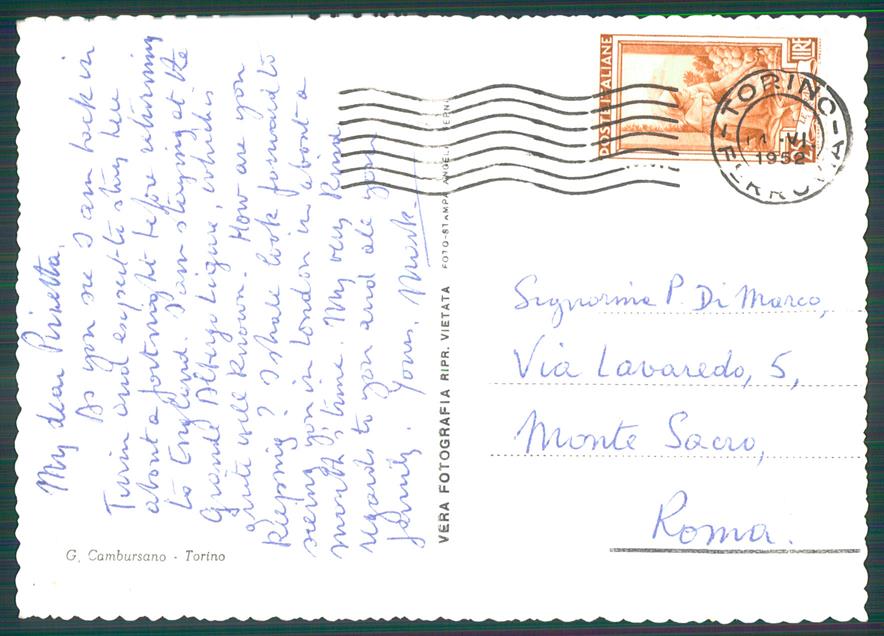 My dear Pinetta,
As you see I am back in
Turin and expect to stay here
about a fortnight before returning
to England. I am staying at the
Grande Albergo Ligure, which is
quite well known. How are you
keeping? I shall look forward to
seeing you in London in about a
month's time. My very kind
regards to you and all your
family. Yours, Mark
G. Cambursano - Torino
VERA FOTOGRAFIA RIPR. VIETATA FOTO-STAMPA ANGELI
POSTE ITALIANE
LIRE
TORINO
VI
1952
FERROVIA
Signorina P. Di Marco,
Via Lavaredo, 5,
Monte Sacro,
Roma.